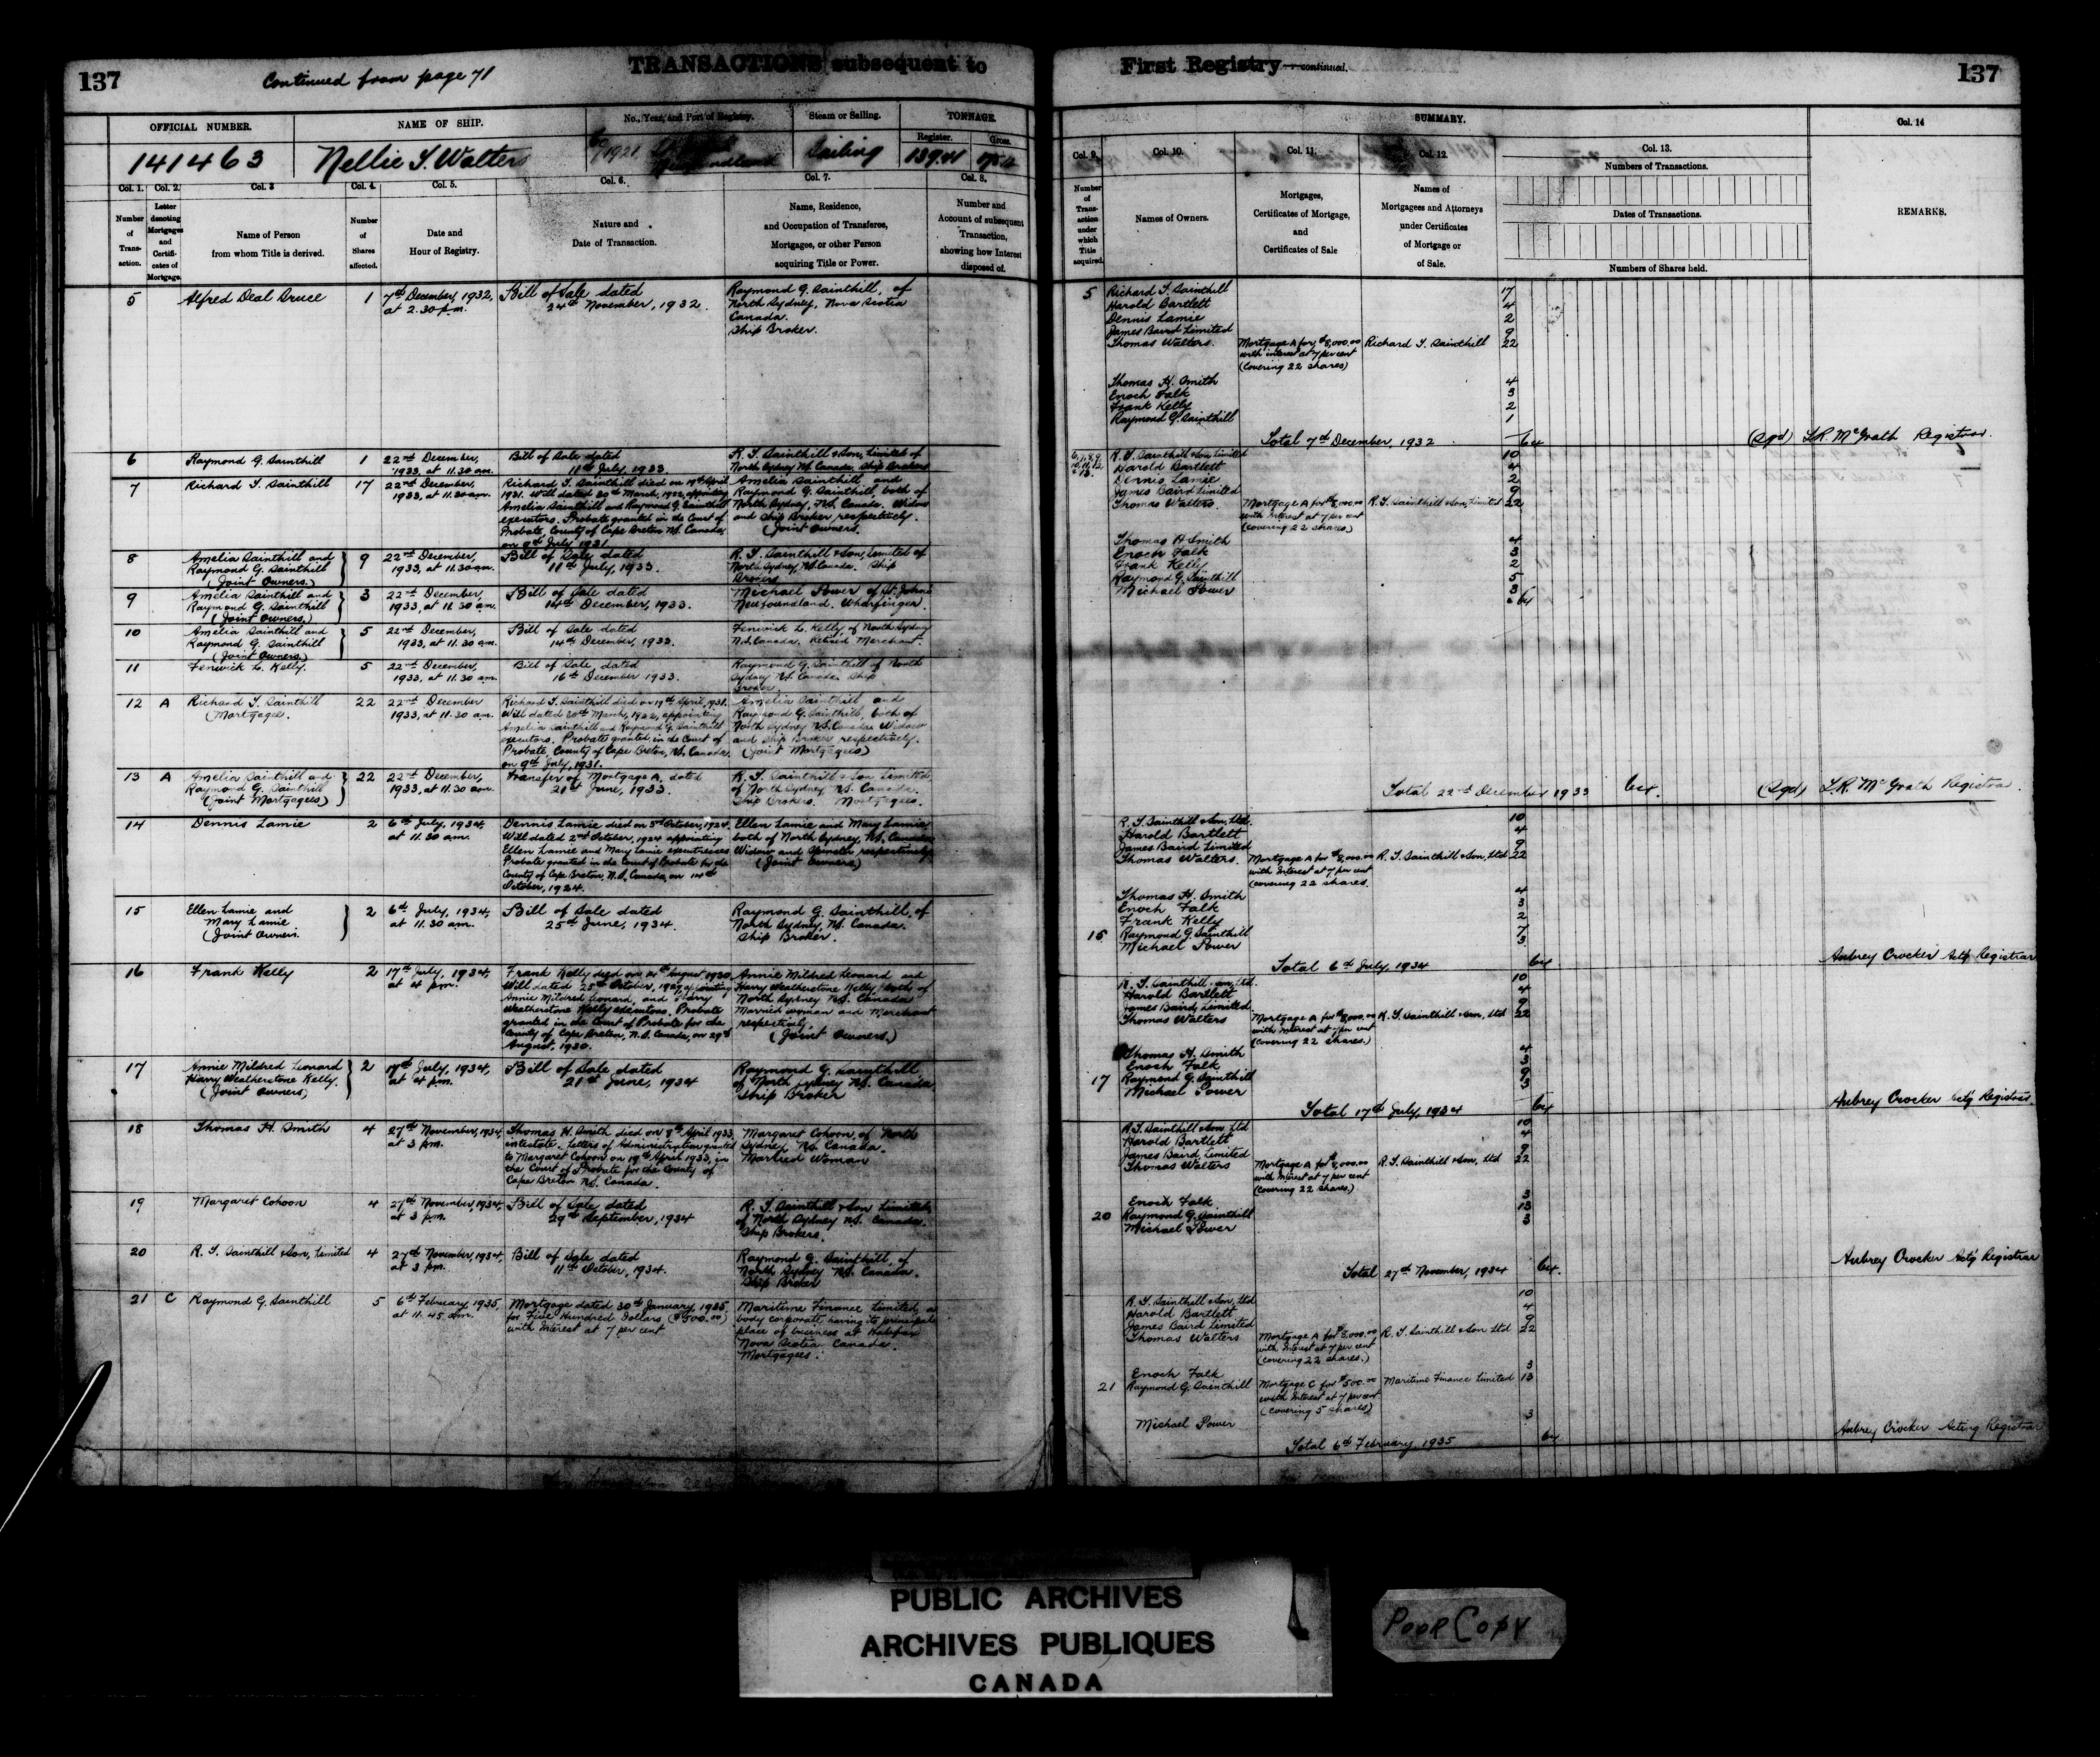 137
Continued from page 71
TRANSACTIONS subsequent to
First Registry—continued.
137
OFFICIAL NUMBER.
NAME OF SHIP.
No., Year, and Port of Registry.
Steam or Sailing.
TONNAGE.
Register.
Gross.
141463
Nellie T. Walters
1921
Sailing
139.41
Col. 1.
Col. 2.
Col. 3
Col. 4.
Col. 5.
Col. 6.
Col. 7.
Col. 8.
Number of Transaction.
Letter denoting Mortgages and Certificates of Mortgage.
Name of Person
from whom Title is derived.
Number of Shares affected.
Date and
Hour of Registry.
Nature and
Date of Transaction.
Name, Residence,
and Occupation of Transferee,
Mortgagee, or other Person
acquiring Title or Power.
Number and
Account of subsequent
Transaction,
showing how Interest
disposed of.
5 Alfred Deal Druce 1 7th December, 1932, at 2.30 p.m.
Bill of Sale dated
24th November, 1932.
Raymond G. Sainthill, of
North Sydney, Nova Scotia
Canada.
Ship Broker.
6 Raymond G. Sainthill 1 22nd December,
1933, at 11.30 am.
Bill of Sale dated
11th July, 1933
R. T. Sainthill & Son, Limited of
North Sydney NS. Canada, Ship Brokers
7 Richard T. Sainthill 17 22nd December,
1933, at 11.30 am.
Richard T. Sainthill died on 19th April
1931. Will dated 30th March, 1922, appointing
Amelia Sainthill and Raymond G. Sainthill
executors. Probate granted in the Court of
Probate, County of Cape Breton NS. Canada,
on 9th July 1931
Amelia Sainthill, and
Raymond G. Sainthill, both of
North Sydney, NS. Canada. Widow
and Ship Broker respectively.
(Joint Owners.
8 Amelia Sainthill and
Raymond G. Sainthill
(Joint Owners.)
9 22nd December,
1933, at 11.30 am.
Bill of Sale dated
11th July, 1933.
R. T. Sainthill & Son, Limited of
North Sydney, NS. Canada. Ship
Brokers
9 Amelia Sainthill and
Raymond G. Sainthill
(Joint Owners.)
3 22nd December,
1933, at 11.30 am.
Bill of Sale dated
14th December, 1933.
Michael Power of St. John's
Newfoundland. Wharfinger.
10 Amelia Sainthill and
Raymond G. Sainthill
(Joint Owners)
5 22nd December,
1933, at 11.30 am.
Bill of Sale dated
14th December, 1933.
Fenwick L. Kelly, of North Sydney
N.S. Canada. Retired Merchant.
11 Fenwick L. Kelly. 5 22nd December,
1933, at 11.30 am.
Bill of Sale, dated
16th December 1933.
Raymond G. Sainthill of North
Sydney NS. Canada. Ship
Broker.
12 A Richard T. Sainthill
(Mortgagee.
22 22nd December
1933, at 11.30 am.
Richard T. Sainthill died on 19th April, 1931.
Will dated 30th March, 1922, appointing
Amelia Sainthill and Raymond G. Sainthill
executors. Probate granted in the Court of
Probate County of Cape Breton, NS. Canada
on 9th July, 1931.
Amelia Sainthill and
Raymond G. Sainthill, both of
North Sydney NS. Canada Widow
and Ship Broker respectively.
(Joint Mortgagees)
13 A Amelia Sainthill and
Raymond G. Sainthill
(Joint Mortgagees)
22 22nd December,
1933, at 11.30 am.
Transfer of Mortgage A, dated
21st June, 1933.
R. T. Sainthill & Son Limited,
of North Sydney NS. Canada.
Ship Brokers. Mortgagees.
14 Dennis Lamie 2 6th July, 1934,
at 11.30 am.
Dennis Lamie died on 3rd October, 1924.
Will dated 2nd October, 1924 appointing
Ellen Lamie and Mary Lamie executrixes
Probate granted in the Court of Probate for the
County of Cape Breton, N.S. Canada, on 14th
October, 1924.
Ellen Lamie and Mary Lamie
both of North Sydney, NS. Canada
Widow and Spinster respectively
(Joint Owners)
15 Ellen Lamie and
Mary Lamie
(Joint Owners.
2 6th July, 1934,
at 11.30 am.
Bill of Sale dated
25th June, 1934.
Raymond G. Sainthill, of
North Sydney, NS. Canada.
Ship Broker.
16 Frank Kelly 2 17th July, 1934,
at 4 pm.
Frank Kelly died on August 1930
Will dated 25th October, 1929, appointing
Annie Mildred Leonard, and Harry
Weatherstone Kelly executors. Probate
granted in the Court of Probate for the
County of Cape Breton, N.S. Canada, on 29th
August, 1930.
Annie Mildred Leonard and
Harry Weatherstone Kelly, both of
North Sydney NS. Canada
Married woman and Merchant
respectively.
(Joint Owners.)
17 Annie Mildred Leonard
Harry Weatherstone Kelly,
(Joint Owners)
2 17th July, 1934,
at 4 pm.
Bill of Sale dated
21st June, 1934
Raymond G. Sainthill
of North Sydney NS. Canada
Ship Broker
18 Thomas H. Smith 4 27th November, 1934,
at 3 pm.
Thomas H. Smith died on 8th April 1933,
intestate. Letters of Administration granted
to Margaret Cohoon on 19th April 1933, in
the Court of Probate for the County of
Cape Breton NS. Canada.
Margaret Cohoon, of North
Sydney NS. Canada.
Married Woman
19 Margaret Cohoon 4 27th November, 1934,
at 3 p.m.
Bill of Sale dated
29th September, 1934
R. T. Sainthill & Son Limited,
of North Sydney NS. Canada.
Ship Brokers.
20 R. T. Sainthill & Son, Limited 4 27th November, 1934,
at 3 pm.
Bill of Sale dated
11th October, 1934.
Raymond G. Sainthill, of
North Sydney NS. Canada.
Ship Broker
21 C Raymond G. Sainthill 5 6th February 1935,
at 11.45 am.
Mortgage dated 30th January 1935,
for Five Hundred Dollars ($500.00)
with Interest at 7 per cent
Maritime Finance Limited, a
body corporate, having its principal
place of business at Halifax
Nova Scotia Canada.
Mortgagees.
SUMMARY.
Col. 9.
Col. 10.
Col. 11.
Col. 12.
Col. 13.
Col. 14
Number of Transaction under which Title acquired.
Names of Owners.
Mortgages,
Certificates of Mortgage,
and
Certificates of Sale
Names of
Mortgagees and Attorneys
under Certificates
of Mortgage or
of Sale.
Numbers of Transactions.
Dates of Transactions.
Numbers of Shares held.
REMARKS.
5 Richard T. Sainthill 17
Harold Bartlett 4
Dennis Lamie 2
James Baird Limited 9
Thomas Walters. Mortgage A for, $8,000.00 Richard T. Sainthill 22
with interest at 7 per cent
(Covering 22 shares)
Thomas H. Smith 4
Enoch Falk 3
Frank Kelly 2
Raymond G. Sainthill 1
Total 7th December, 1932 64
(Sgd) L.R. McGrath Registrar.
R. T. Sainthill & Son, Limited 10
Harold Bartlett 4
Dennis Lamie 2
James Baird Limited 9
Thomas Walters. Mortgage A for $8,000.00 R. T. Sainthill & Son, Limited 22
with Interest at 7 per cent
(covering 22 shares)
Thomas H Smith 4
Enoch Falk 3
Frank Kelly 2
Raymond G. Sainthill 5
Michael Power 3
64
Total 22nd December 1933 64.
(Sgd) L.R. McGrath Registrar.
R. T. Sainthill & Son, Ltd. 10
Harold Bartlett 4
James Baird Limited 9
Thomas Walters. Mortgage A for $8,000.00 R. T. Sainthill & Son, Ltd 22
with Interest at 7 per cent
(covering 22 shares.
Thomas H. Smith 4
Enoch Falk 3
Frank Kelly 2
15 Raymond G. Sainthill 7
Michael Power 3
Total 6th July, 1934 64
Aubrey Crocker Actg Registrar
R. T. Sainthill & Son, Ltd. 10
Harold Bartlett 4
James Baird, Limited 9
Thomas Walters Mortgage A for $8,000.00 R. T. Sainthill & Son, Ltd 22
with Interest at 7 per cent
(covering 22 shares.)
Thomas H. Smith 4
Enoch Falk 3
17 Raymond G. Sainthill 9
Michael Power 3
Total 17th July, 1934 64
Aubrey Crocker Actg Registrar.
R. T. Sainthill & Son, Ltd 10
Harold Bartlett 4
James Baird Limited 9
Thomas Walters Mortgage A for $8,000.00 R. T. Sainthill & Son, Ltd 22
with Interest at 7 per cent
(covering 22 shares.)
Enoch Falk. 3
20 Raymond G. Sainthill 13
Michael Power 3
Total 27th November, 1934 64.
Aubrey Crocker Actg Registrar
R. T. Sainthill & Son, Ltd 10
Harold Bartlett 4
James Baird Limited 9
Thomas Walters Mortgage A for $8,000.00 R. T. Sainthill & Son Ltd 22
with Interest at 7 per cent
(covering 22 shares.)
Enoch Falk 3
21 Raymond G. Sainthill Mortgage C for $500.00 Maritime Finance Limited 13
with Interest at 7 per cent
(covering 5 shares)
Michael Power 3
Total 6th February, 1935 64
Aubrey Crocker Acting Registrar
PUBLIC ARCHIVES
ARCHIVES PUBLIQUES
CANADA
POOR COPY